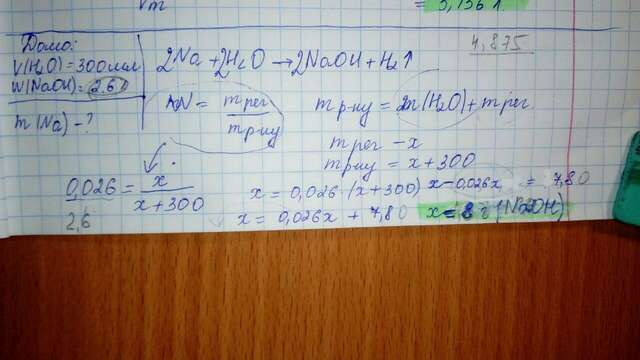 = 3,136 л
Дамо:
V(H₂O) = 300 мл
W(NaOH) = 2,6%
m(Na) - ?
2Na + 2H₂O → 2NaOH + H₂↑
4,875
W = m рег / m р-ну
m р-ну = m(H₂O) + m рег.
m рег - x
m р-ну = x + 300
0,026 = x / x + 300
2,6
x = 0,026 (x + 300)
x = 0,026x + 7,80
x - 0,026x = 7,80
x = 8 г (NaOH)